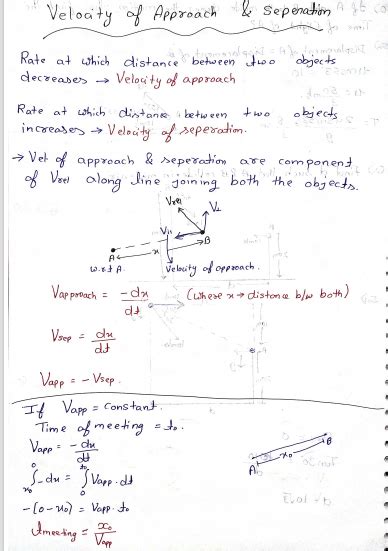 Velocity of Approach & Seperation
Rate at which distance between two objects
decreases → Velocity of approach
Rate at which distance between two objects
increases → Velocity of seperation.
→ Vel of approach & seperation are component
of Vrel along line joining both the objects.
Vrel
V⊥
V||
A
x
B
w.r.t A.
Velocity of approach.
Vapproach = -dx/dt (where x → distance b/w both)
Vsep = dx/dt
Vapp = - Vsep.
If Vapp = constant.
Time of meeting = t₀.
Vapp = -dx/dt
∫_{x₀}^{0} -dx = ∫_{0}^{t₀} Vapp . dt
-(0-x₀) = Vapp . t₀
tmeeting = x₀/Vapp
A
x₀
B